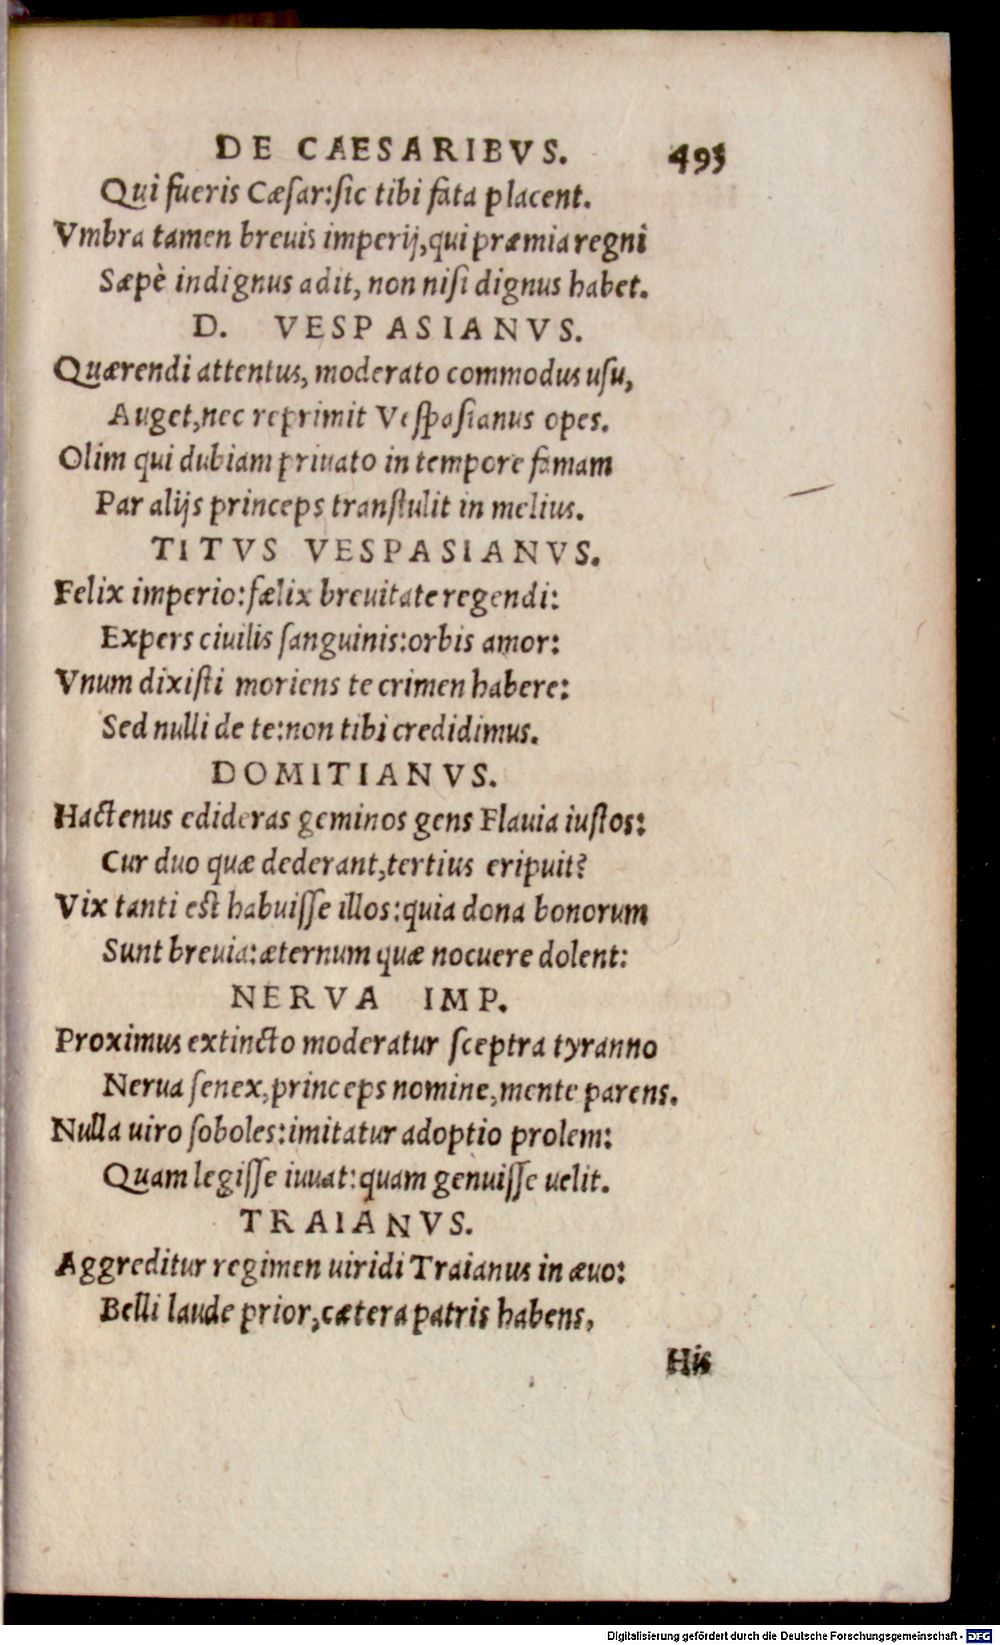 DE CAESARIBVS. 495
Qui fueris Cæſar:ſic tibi fata placent.
Vmbra tamen breuis imperij,qui præmia regni
Sæpè indignus adit, non niſi dignus habet.
D. VESPASIANVS.
Quærendi attentus, moderato commodus uſu,
Auget,nec reprimit Veſpaſianus opes.
Olim qui dubiam priuato in tempore famam
Par alijs princeps tranſtulit in melius.
TITVS VESPASIANVS.
Felix imperio:fælix breuitate regendi:
Expers ciuilis ſanguinis:orbis amor:
Vnum dixiſti moriens te crimen habere:
Sed nulli de te:non tibi credidimus.
DOMITIANVS.
Hactenus edideras geminos gens Flauia iuſtos:
Cur duo quæ dederant,tertius eripuit?
Vix tanti eſt habuiſſe illos:quia dona bonorum
Sunt breuia:æternum quæ nocuere dolent:
NERVA IMP.
Proximus extincto moderatur ſceptra tyranno
Nerua ſenex,princeps nomine,mente parens.
Nulla uiro ſoboles:imitatur adoptio prolem:
Quam legiſſe iuuat:quam genuiſſe uelit.
TRAIANVS.
Aggreditur regimen uiridi Traianus in æuo:
Belli laude prior,cætera patris habens,
His
Digitalisierung gefördert durch die Deutsche Forschungsgemeinschaft - DFG